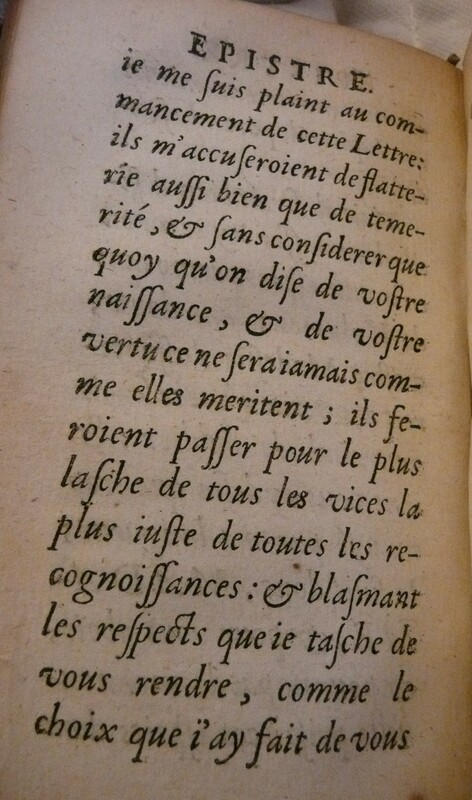 EPISTRE.
ie me ſuis plaint au com-
mancement de cette Lettre:
ils m'accuſeroient de flatte-
rie auſſi bien que de teme-
rité, & ſans conſiderer que
quoy qu'on diſe de voſtre
naiſſance, & de voſtre
vertu ce ne ſera iamais com-
me elles meritent; ils fe-
roient paſſer pour le plus
laſche de tous les vices la
plus iuſte de toutes les re-
cognoiſſances: & blaſmant
les reſpects que ie taſche de
vous rendre, comme le
choix que i'ay fait de vous